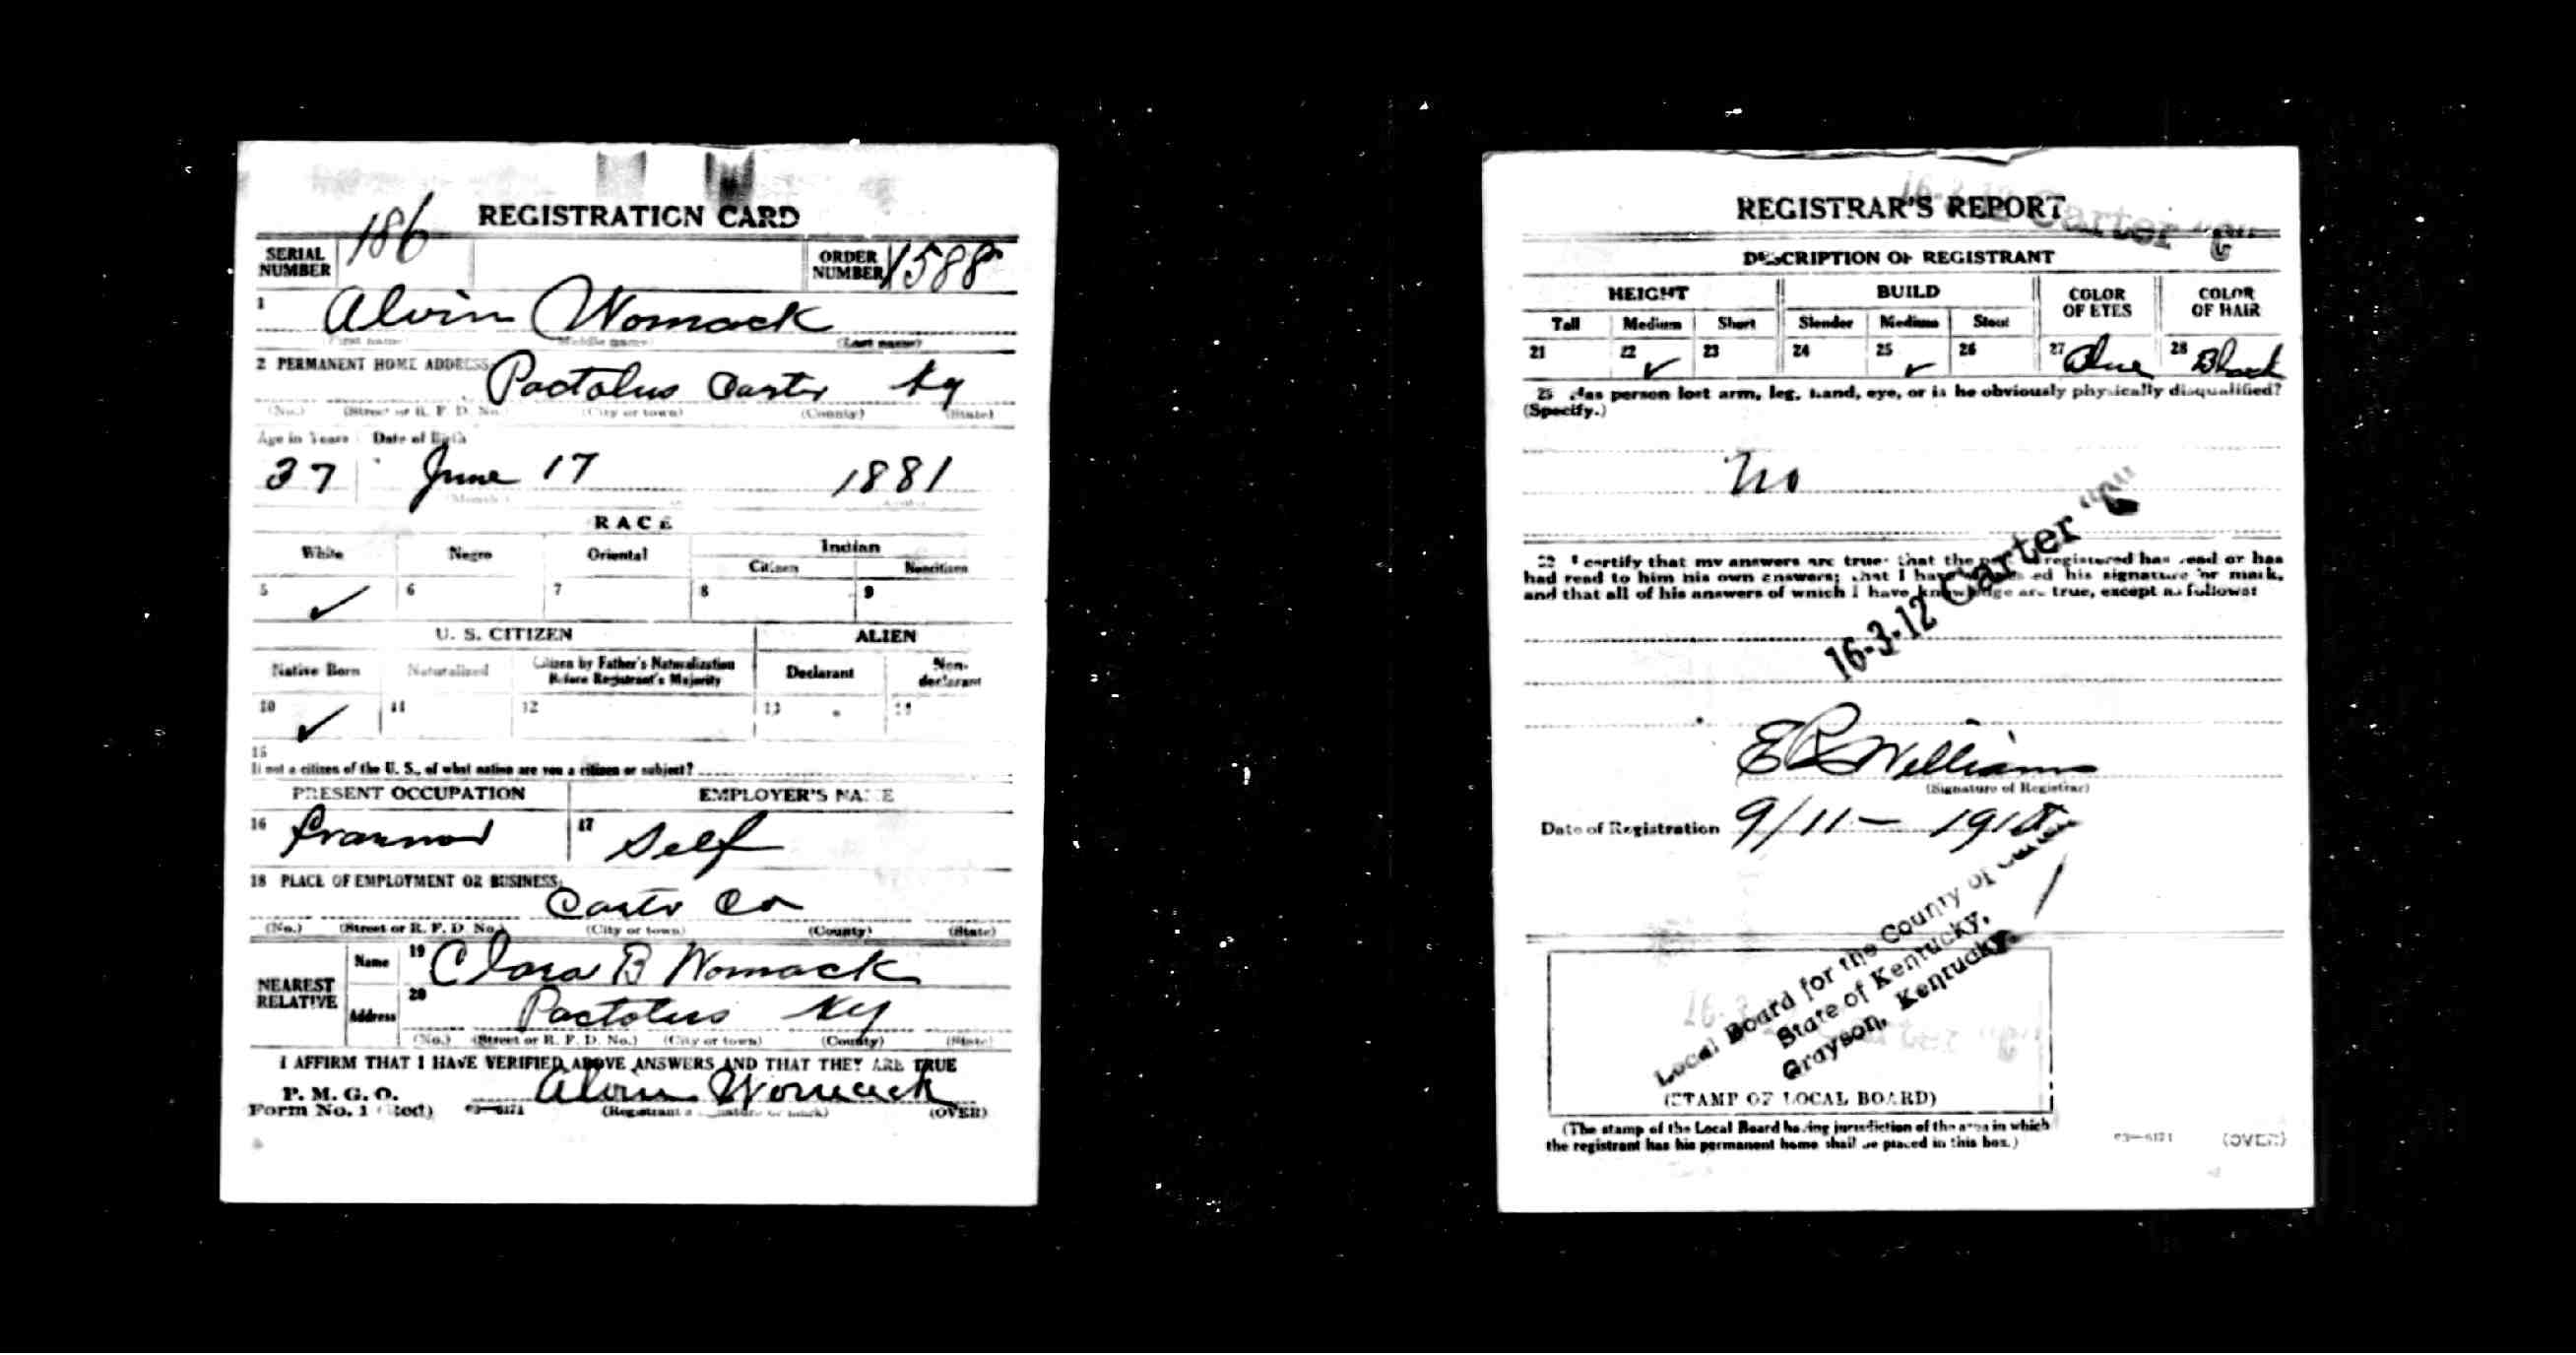 REGISTRATION CARD
SERIAL NUMBER 186 ORDER NUMBER 1588
1 Alvin Womack
(First name) (Middle name) (Last name)
2 PERMANENT HOME ADDRESS Pactolus Carter Ky
(No.) (Street or R. F. D. No.) (City or town) (County) (State)
Age in Years Date of Birth
37 June 17 1881
(Month)
RACE
White Negro Oriental Indian
Citizen Noncitizen
5 ✓ 6 7 8 9
U. S. CITIZEN ALIEN
Native Born Naturalized Citizen by Father's Naturalization Before Registrant's Majority Declarant Non-declarant
10 ✓ 11 12 13
15
If not a citizen of the U. S., of what nation are you a citizen or subject?
PRESENT OCCUPATION EMPLOYER'S NAME
16 17 Self
18 PLACE OF EMPLOYMENT OR BUSINESS:
Carter Co
(No.) (Street or R. F. D. No.) (City or town) (County) (State)
NEAREST RELATIVE Name 19 Clara B Womack
Address 20 Pactolus Ky
(No.) (Street or R. F. D. No.) (City or town) (County) (State)
I AFFIRM THAT I HAVE VERIFIED ABOVE ANSWERS AND THAT THEY ARE TRUE
P. M. G. O.
Form No. 1 (Red) Alvin Womack
(Registrant's signature or mark) (OVER)
REGISTRAR'S REPORT
Carter "C"
DESCRIPTION OF REGISTRANT
HEIGHT BUILD COLOR OF EYES COLOR OF HAIR
Tall Medium Short Slender Medium Stout
21 22 ✓ 23 24 25 ✓ 26 27 Blue 28 Black
Has person lost arm, leg, hand, eye, or is he obviously physically disqualified?
(Specify.)
No
I certify that my answers are true; that the person registered has read or has
had read to him his own answers; that I have witnessed his signature or mark,
and that all of his answers of which I have knowledge are true, except as follows:
16-3-12 Carter "C"
E R Williams
(Signature of Registrar)
Date of Registration 9/11 - 1918
Local Board for the County of Carter
State of Kentucky,
Grayson, Kentucky.
(STAMP OF LOCAL BOARD)
(The stamp of the Local Board having jurisdiction of the area in which
the registrant has his permanent home shall be placed in this box.)
03-6171 (OVER)